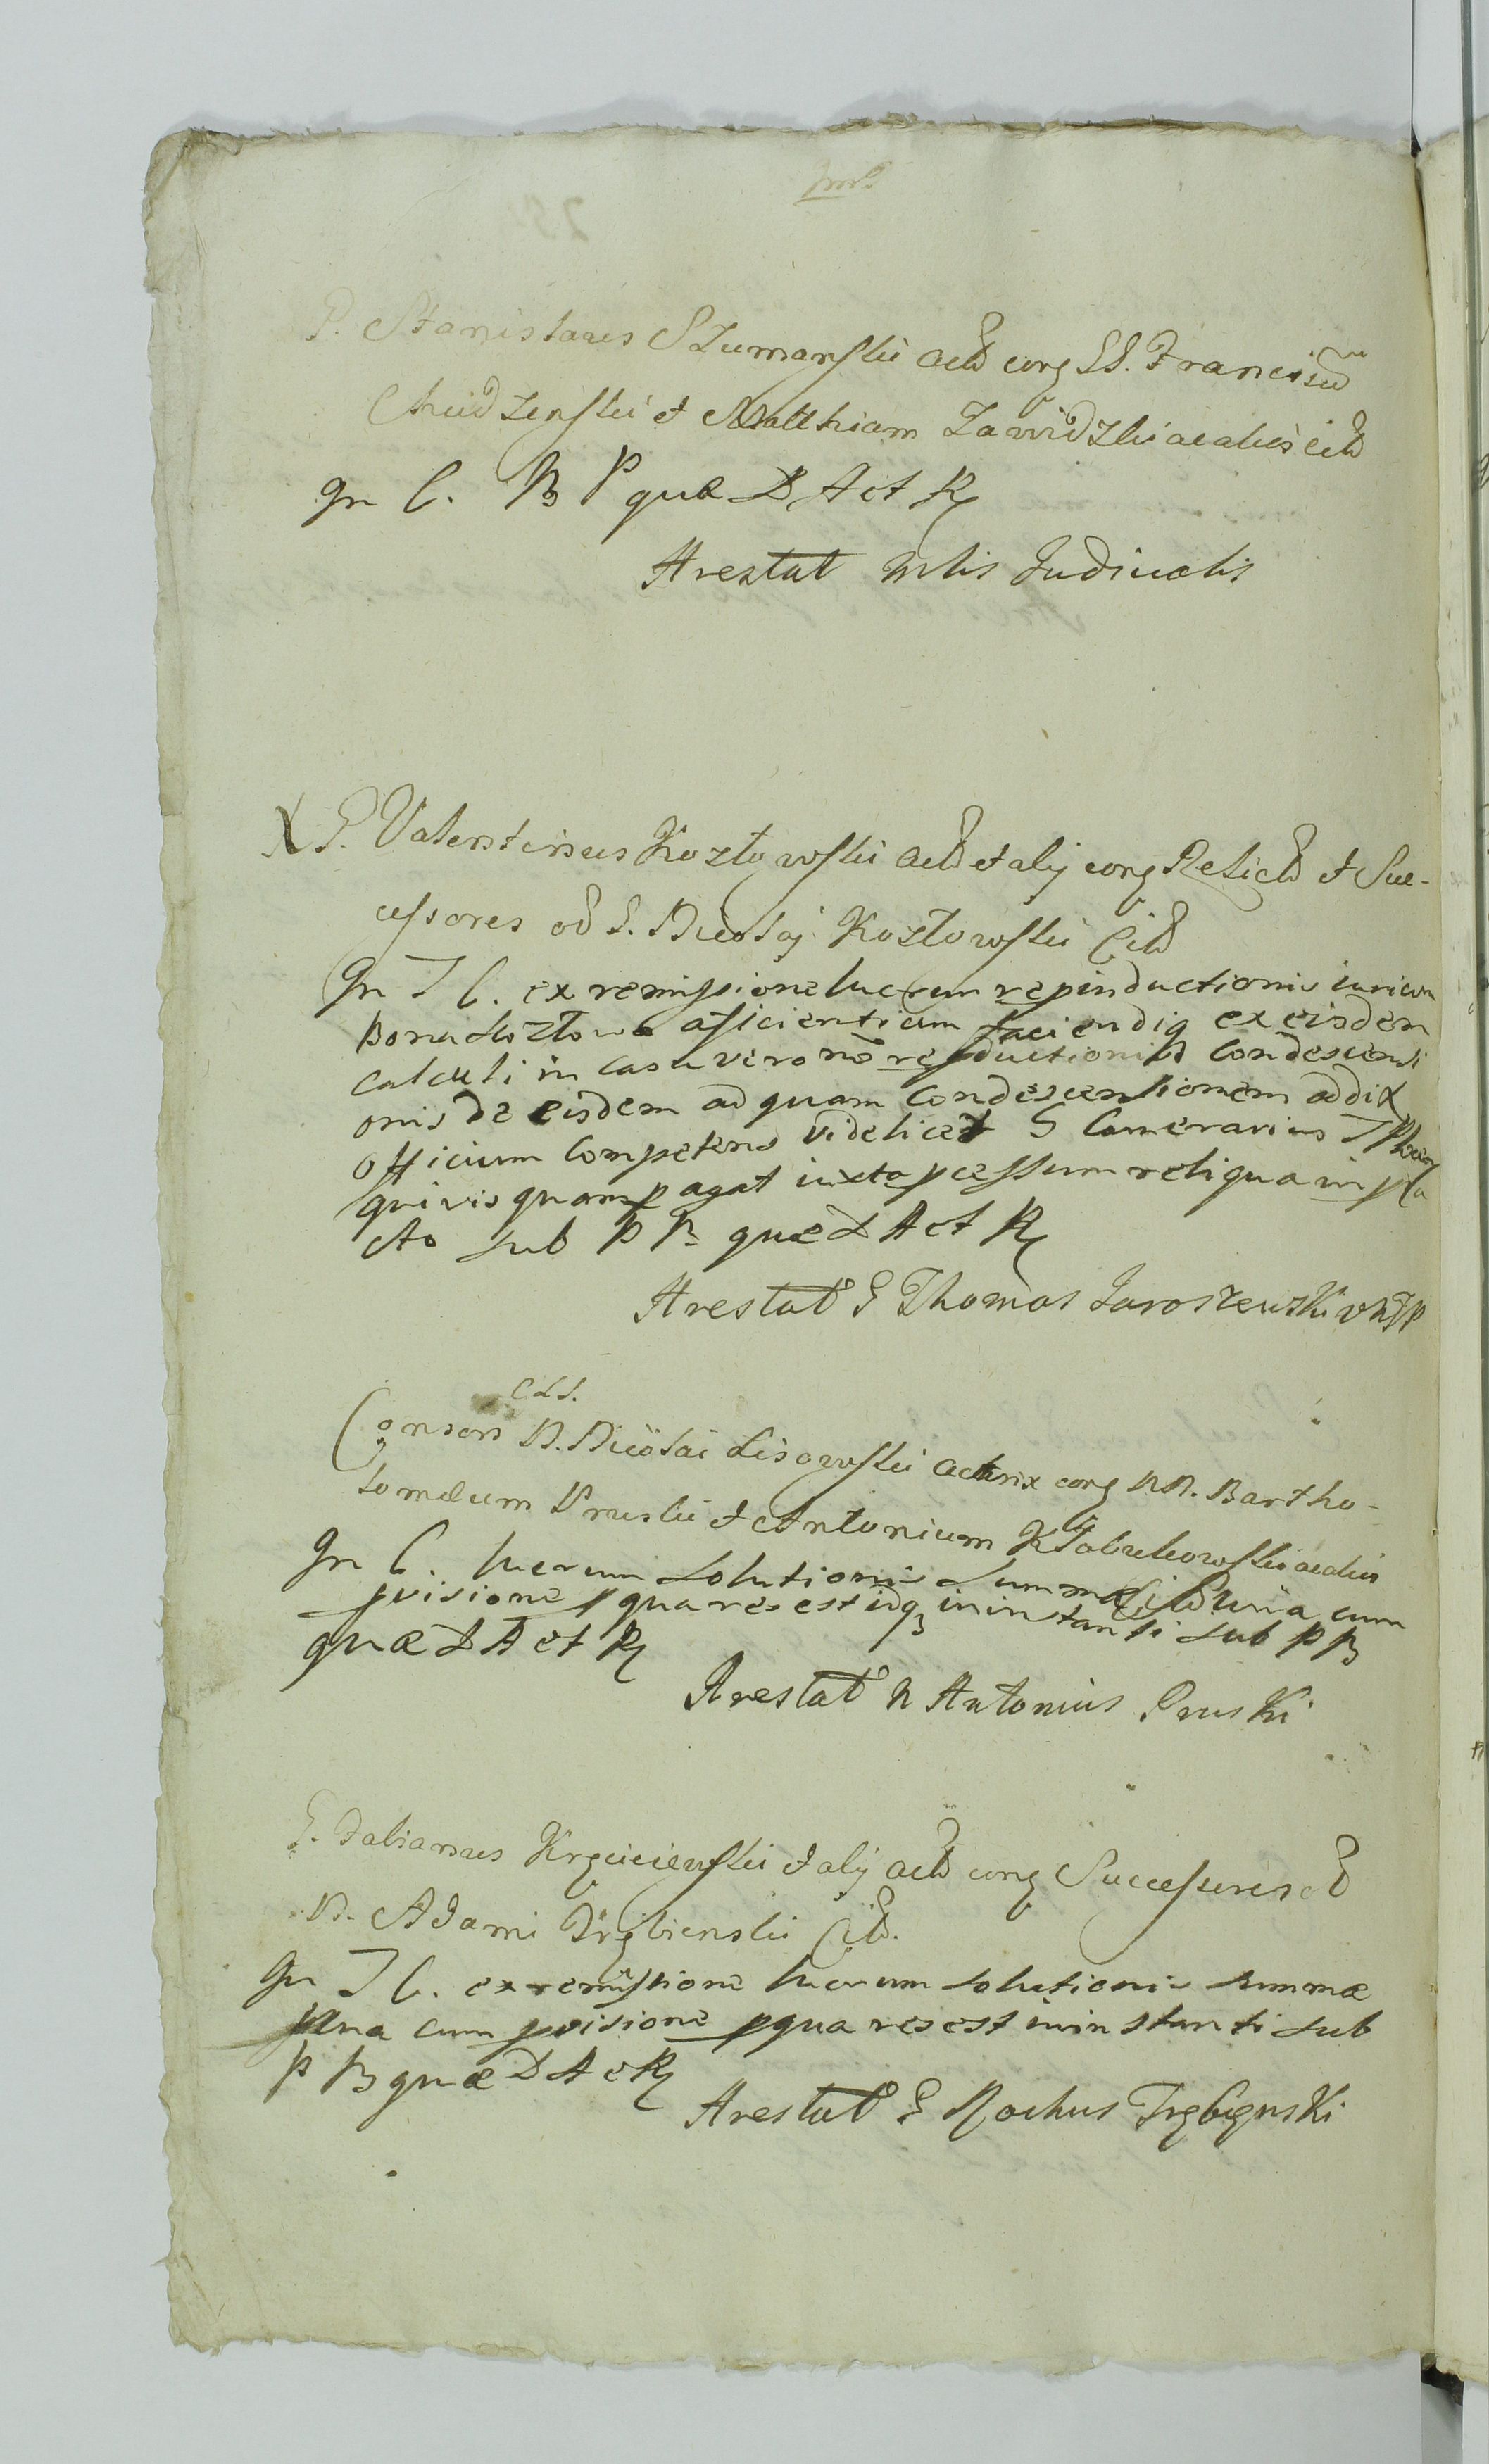 P. Stanislaus Szumanski act cong SS. Francisc
Chudzenski et Matthiam Zawidzki alios cit
In C. B P quæ D A et R
Arestat Mtis Judicialis
X S. Valentinus Kozłowski act et alij cong Relict et Suc-
cessores od S. Nicolaj Kozłowski Cit
In T C. ex remissione lucrum repinductionis iurium
bona Kozłowo aficientium faciendiq ex eisdem
calculi in casu vero no repductionis condescensi
onis de eisdem ad quam condescensionem addit
officium competens videlicet S Camerarius
qui vis quam p agat iuxta pcessum reliqua in
cto sub P B quæ D A et R
Arestat S Thomas Jaroszewski
CLS.
Consors N. Nicolai Lisowski actrix cong NN. Bartho-
lomæum Pruski et Antonium Kłobukowski alios
In C. lucrum solutionis summæ Cit una cum
pvisione p qua res est idq in instanti sub P B
quæ D A et R
Arestat N Antonius Pruski
S. Fabianus et alij act cong Successores
N. Adami Cit.
In T C. ex remissione lucrum solutionis summæ
una cum pvisione p qua res est in instanti sub
P B quæ D A et R
Arestat S Rochus Trębynski